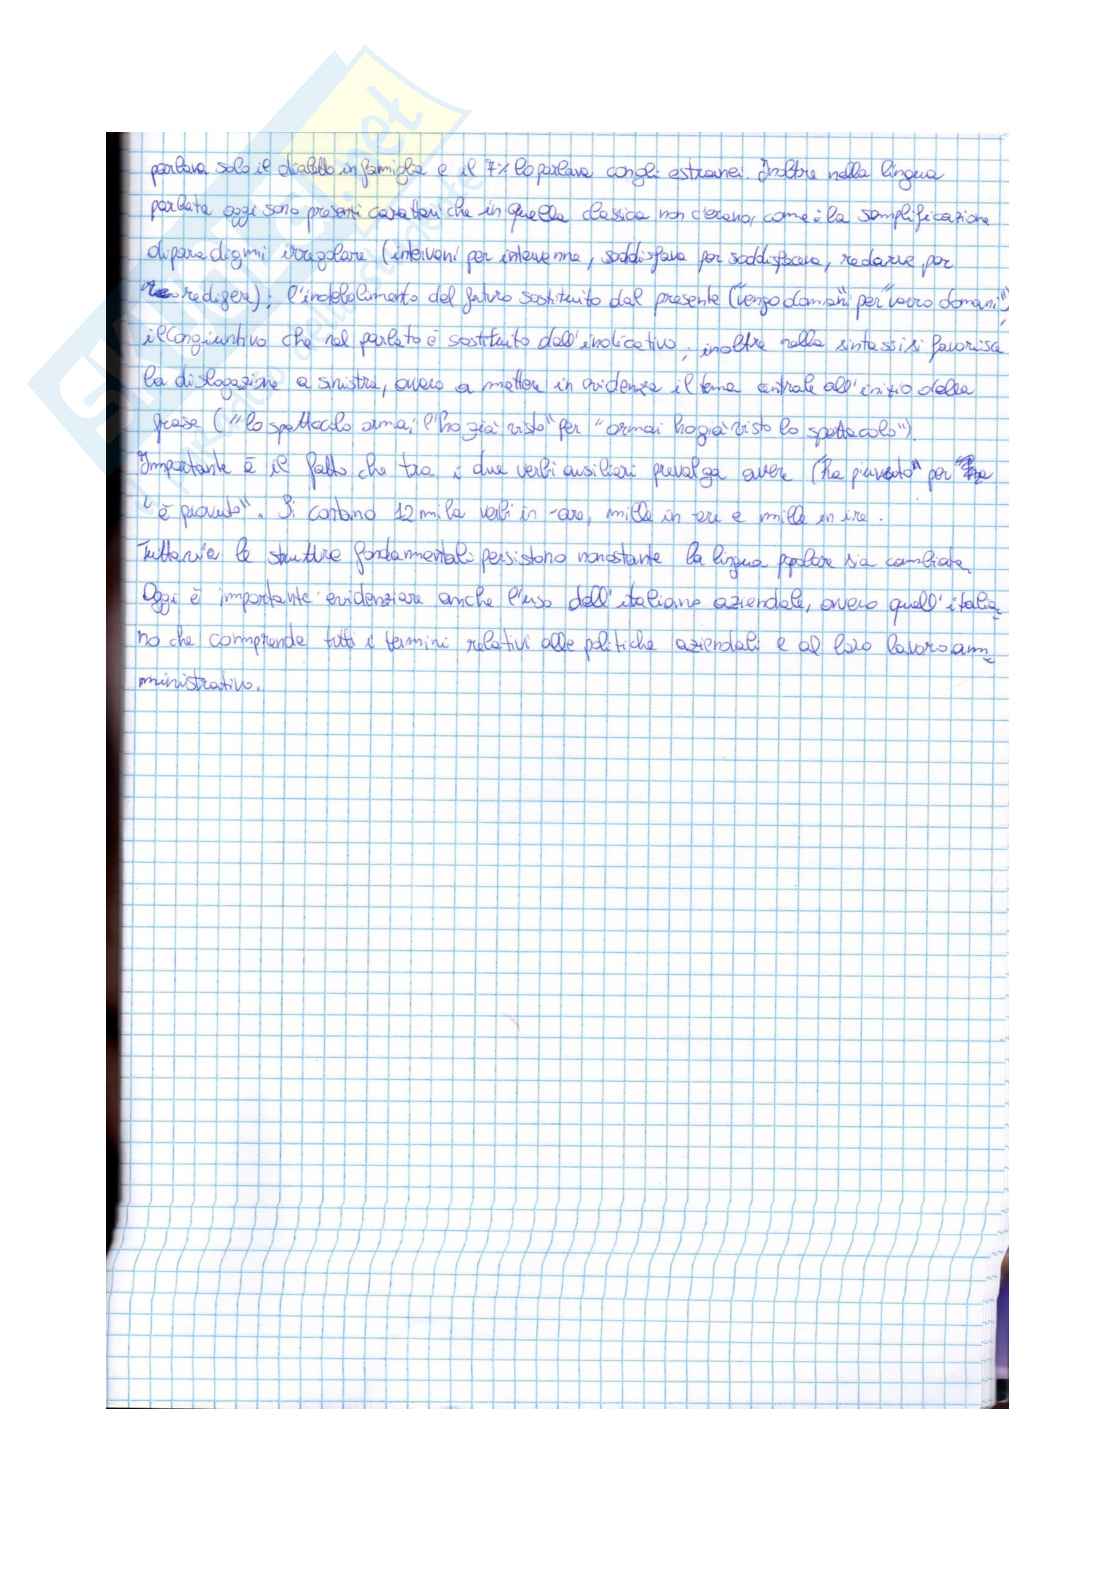 parlava solo il dialetto in famiglia e il 7% lo parlava con gli estranei. Inoltre nella lingua
parlata oggi sono presenti caratteri che in quella classica non c'erano, come: la semplificazione
di paradigmi irregolare (intervenni per intervenne, soddisfava per soddisfaceva, redarre per
redigere); l'indebolimento del futuro sostituito dal presente ("vengo domani" per "verrò domani");
il congiuntivo che nel parlato è sostituito dall'indicativo; inoltre nella sintassi si favorisce
la dislogazione a sinistra, ovvero a mettere in evidenza il tema centrale all'inizio della
frase ("lo spettacolo ormai l'ho già visto" per "ormai ho già visto lo spettacolo").
Importante è il fatto che tra i due verbi ausiliari prevalga avere ("ha piovuto" per
"è piovuto". Si contano 12 mila verbi in -are, mille in ere e mille in ire.
Tuttavia le strutture fondamentali persistono nonostante la lingua popolare sia cambiata.
Oggi è importante evidenziare anche l'uso dell'italiano aziendale, ovvero quell'italia-
no che comprende tutti i termini relativi alle politiche aziendali e al loro lavoro am-
ministrativo.
SKUOLA.net